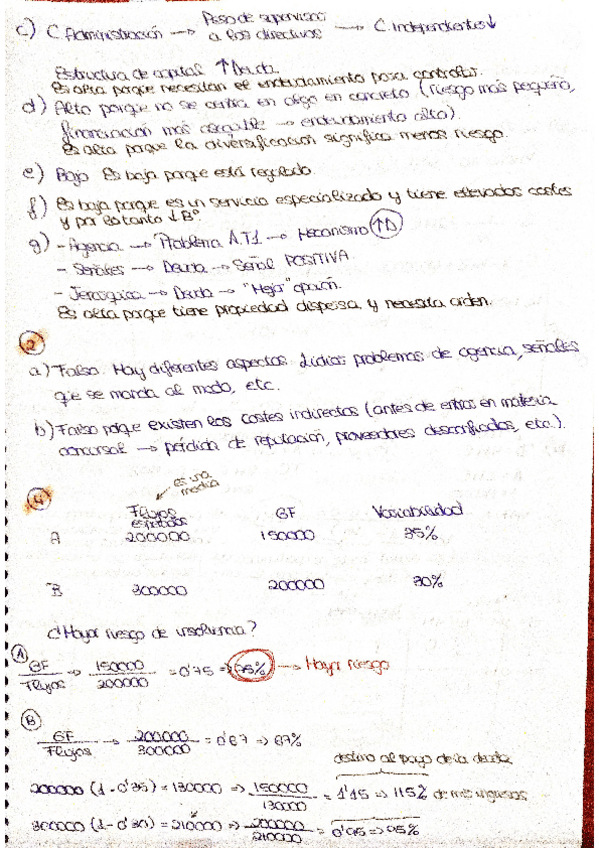 c) C. Administración → Peso de supervisión a los directivos → C. Independientes ↓
Estructura de capital ↑ Deuda.
Es alta porque necesitan el endeudamiento para controlar.
d) Alto porque no se centra en algo en concreto (riesgo más pequeño,
financiación más asequible → endeudamiento alto).
Es alta porque la diversificación significa menos riesgo.
e) Bajo Es baja porque está regulado.
f) Es baja porque es un servicio especializado y tiene elevados costes
y por lo tanto ↓ Bº
g) - Agencia → Problema A.T1 → Mecanismo ↑D
- Señales → Deuda → Señal POSITIVA.
- Jerárquica → Deuda → "Mejor" opción.
Es alta porque tiene propiedad dispersa y necesita orden.
2
a) Falso. Hay diferentes aspectos. problemas de agencia, señales
que se manda al mdo, etc.
b) Falso porque existen los costes indirectos (antes de entrar en materia
concursal → pérdida de reputación, proveedores desconfiados, etc.).
4
es una media
Flujos esperados GF Variabilidad
A 200000 150000 35%
B 300000 200000 30%
¿Mayor riesgo de insolvencia?
A
GF / Flujos → 150000 / 200000 = 0'75 ⇒ 75% → Mayor riesgo
B
GF / Flujos → 200000 / 300000 = 0'67 ⇒ 67%
destino al pago de la deuda
200000 (1 - 0'35) = 130000 ⇒ 150000 / 130000 = 1'15 ⇒ 115% de mis ingresos
300000 (1 - 0'30) = 210000 ⇒ 200000 / 210000 = 0'95 ⇒ 95%